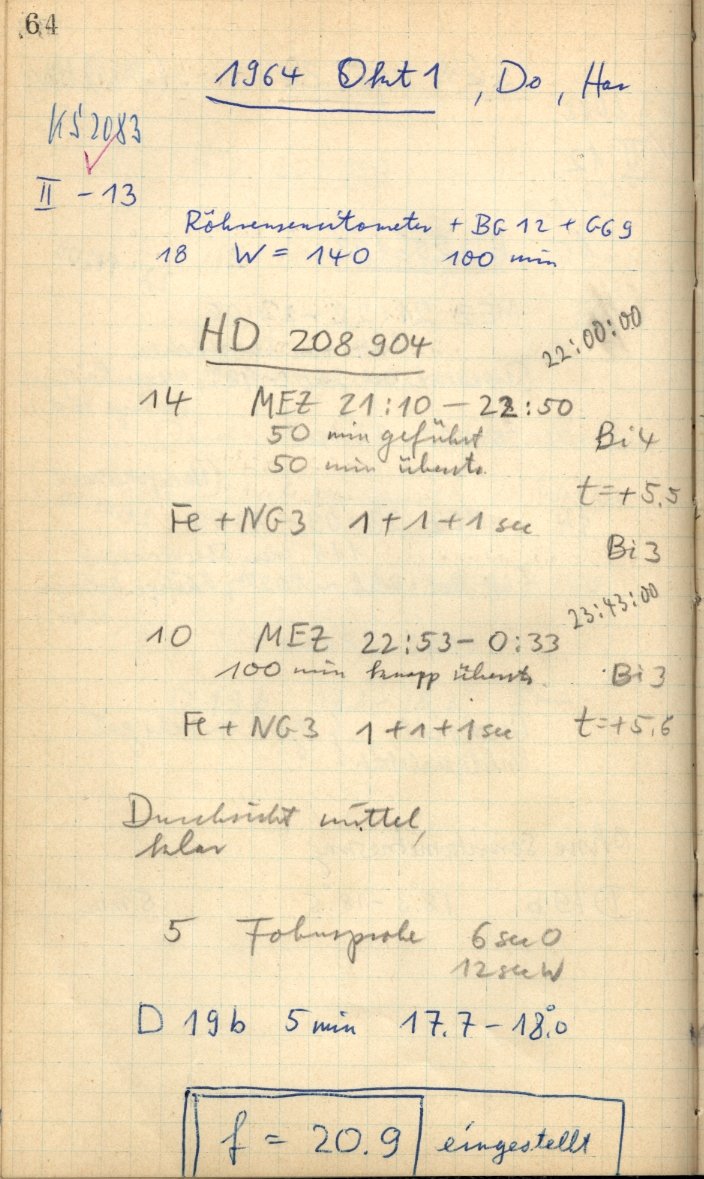 64
1964 Okt 1, Do, Han
KS 2083
II - 13
Röhrensensitometer + BG 12 + GG 9
18 W = 140 100 min
HD 208 904
22:00:00
14 MEZ 21:10 - 22:50
50 min geführt
Bi 4
50 min überst.
t=+5.5
Fe + NG 3 1+1+1 sec
Bi 3
23:43:00
10 MEZ 22:53 - 0:33
100 min knapp überst.
Bi 3
Fe + NG 3 1+1+1 sec
t=+5.6
Durchsicht mittel,
klar
5 Fokusprobe 6 sec O
12 sec W
D 19b 5 min 17.7 - 18.°0
f = 20.9 eingestellt